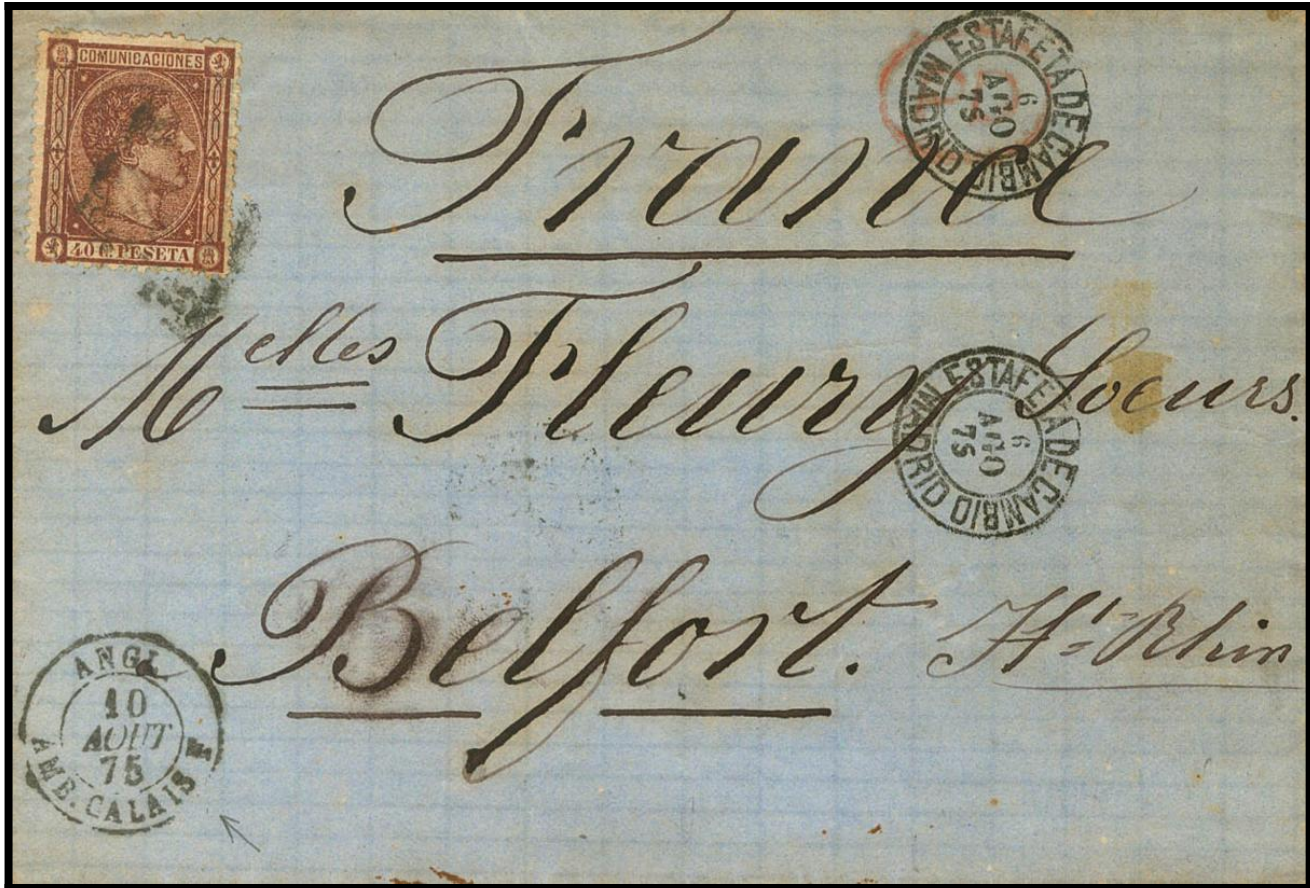 COMUNICACIONES
40 C. PESETA
ESTAFETA DE CAMBIO MADRID
6
AGO
75
France
Melles Fleury Soeurs.
ESTAFETA DE CAMBIO MADRID
6
AGO
75
Belfort. Ht=Rhin
ANGL.
10
AOUT
75
AMB. CALAIS